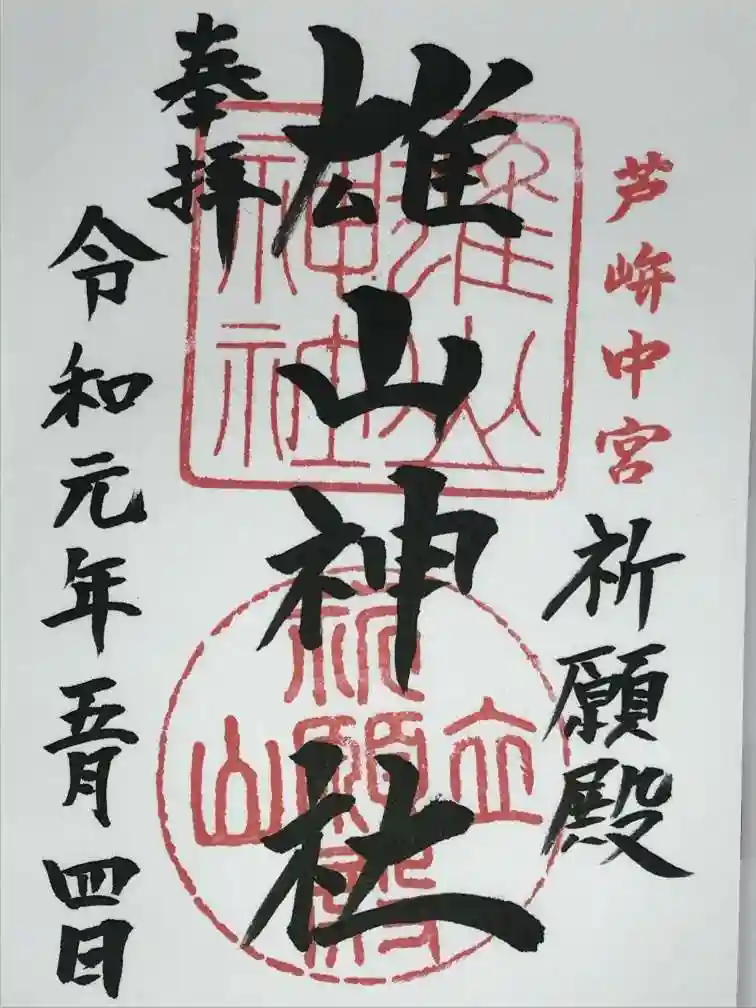 芦峅中宮
祈願殿
雄山神社
奉拝
令和元年五月四日
雄山
神社
立山
祈願殿